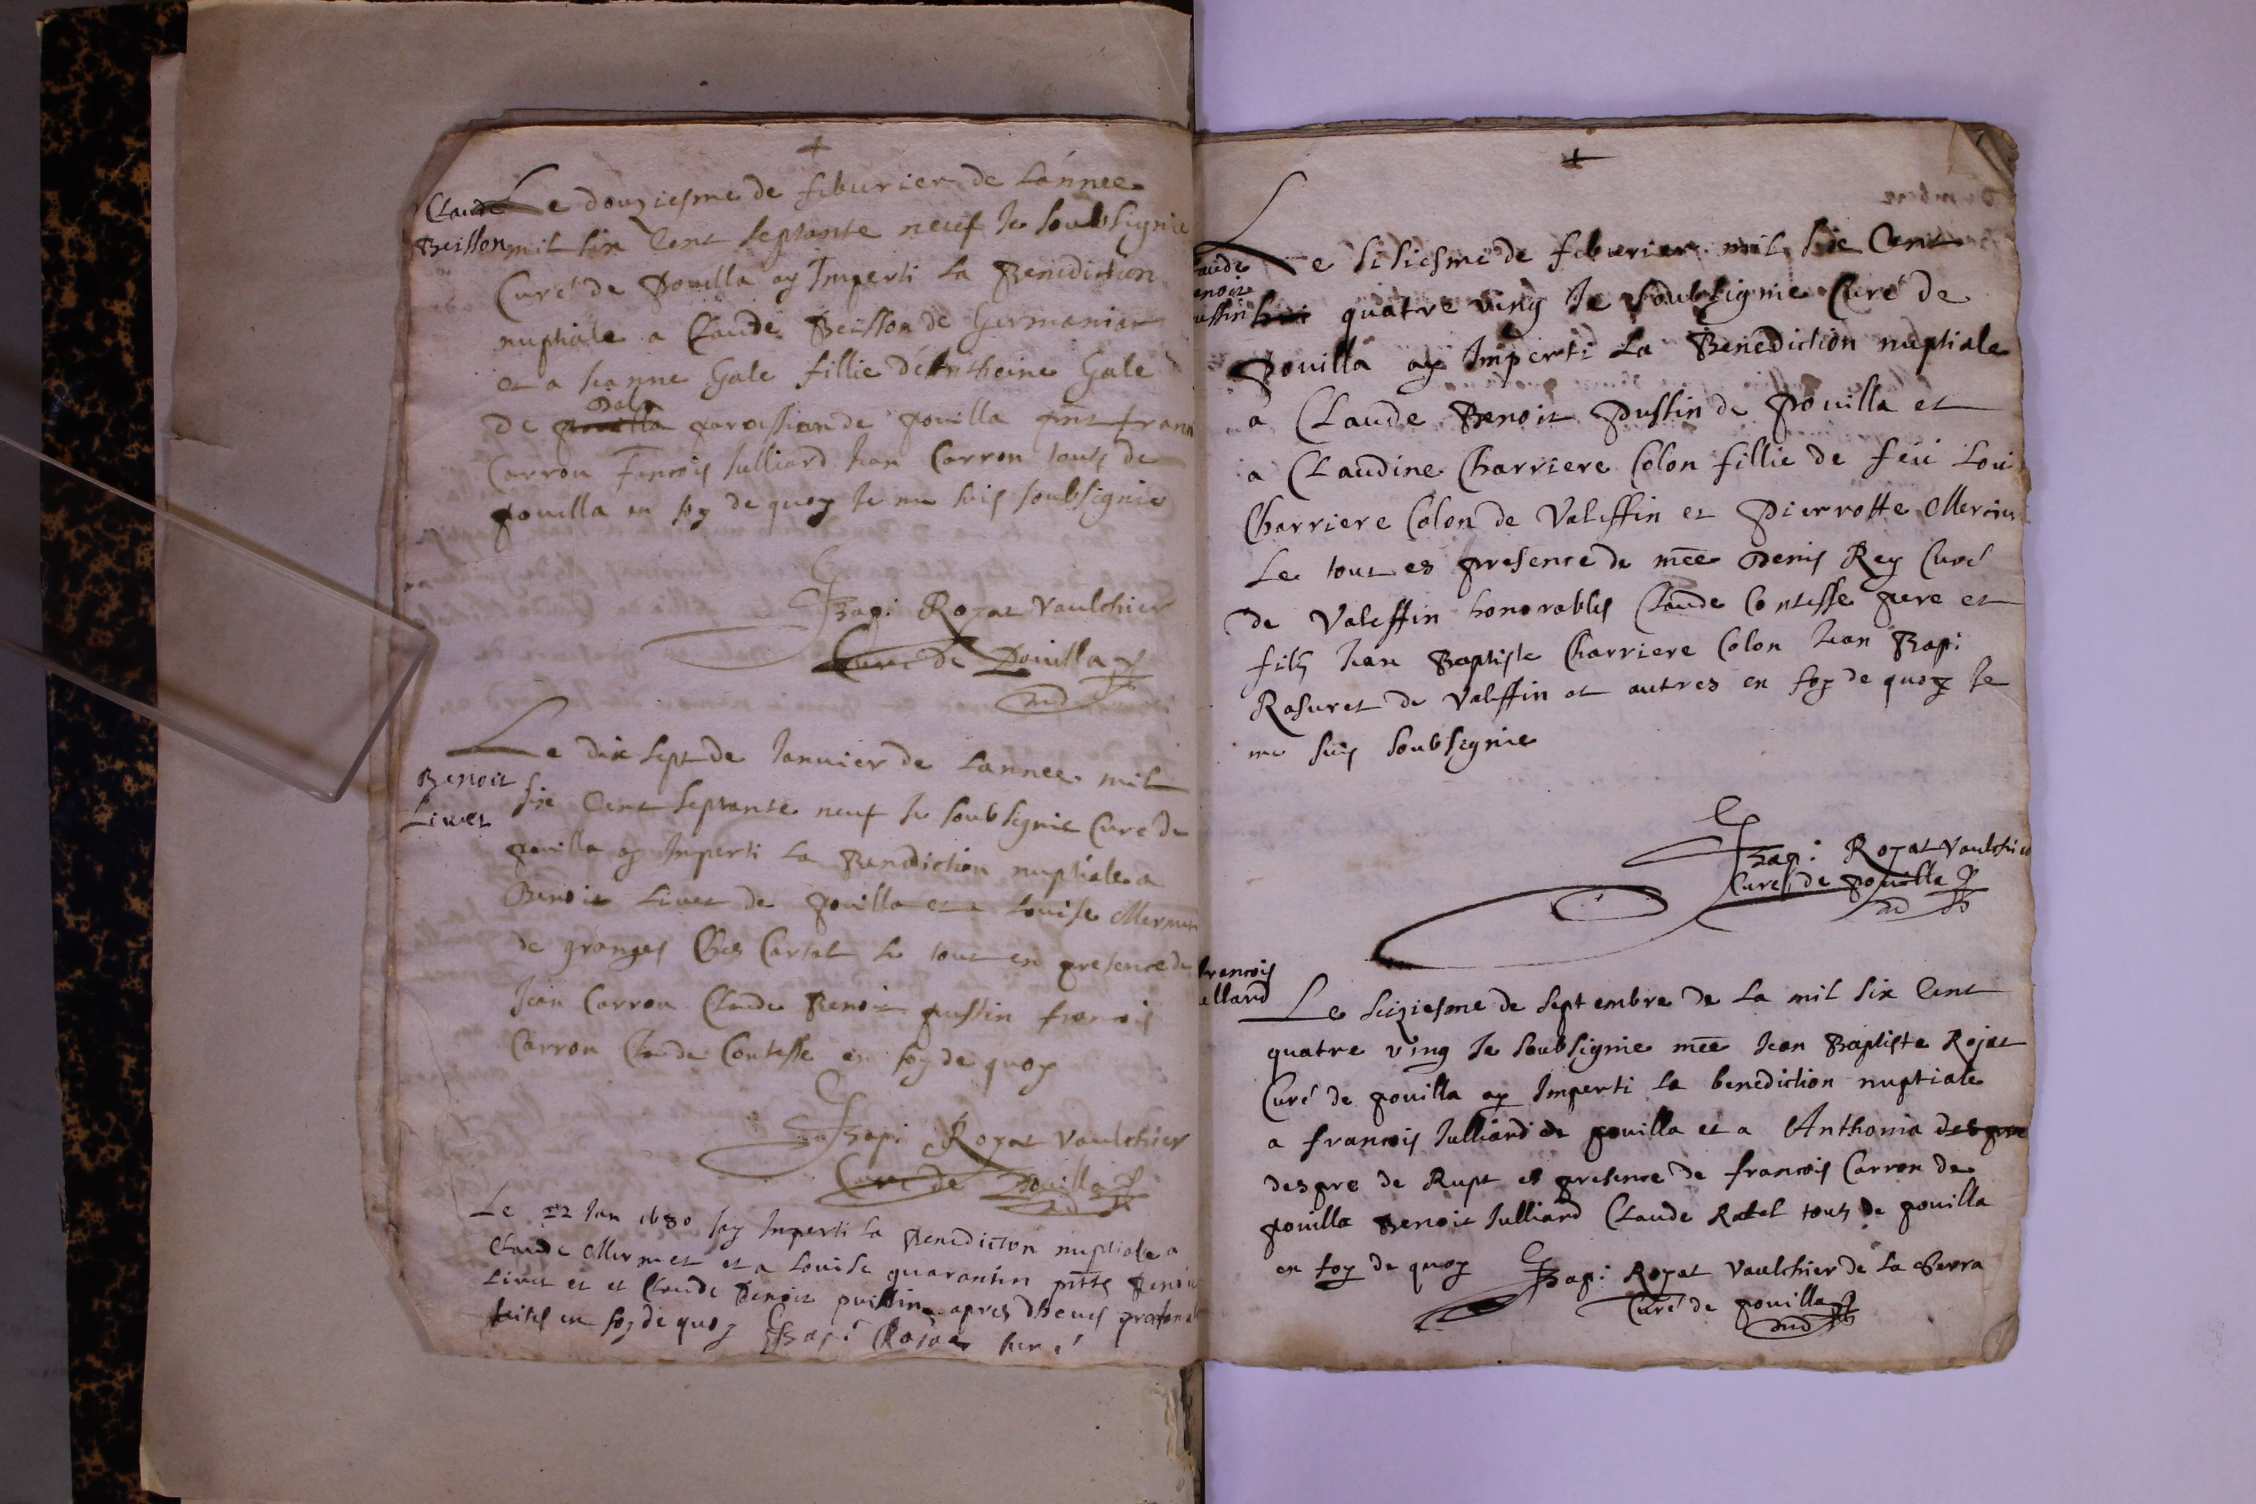 Claude
Beisson
Le douziesme de feburier de Lánnee
mil six Cent septante neuf Je soubsignie
Curé de Pouilla ay Imperti La Benediction
nuptiale a Claude Beisson de Germanian
et a Jeanne Gale fillie dé Antheine Gale
Dole
de pouilla paroissian de pouilla pnt fran
Carron Francois Julliard Jean Carron touts de
pouilla en foy de quoy Je me suis soubsignie
Bapi Rojat Vaulchier
Curé de Pouilla
Benoit
Livet
Le dix sept de Januier de Lannee mil
six Cent septante neuf Je soubsignie Curé de
pouilla ay Imperti La Benediction nuptiale a
Benoit Livet de pouilla et a Louise Mermet
de granges Ches Cartal Le tout en presence de
Jean Carron Claude Benoit pussin francois
Carron Claude Contesse en foy de quoy
Bapi Rojat Vaulchier
Curé de Pouilla
Le 22 Jan 1680 Jay Imperti La Benediction nuptiale a
Claude Mermet et a Louise quarantin Benoit
Livet et et Claude Benoit puissin apres
faites en foy de quoy Bapi Rojat
Le sisiesme de feburier mil six Cent
aude
enoit
ussin
hui quatre ving Je soubsignie Curé de
Pouilla ay Imperti La Benediction nuptiale
a Claude Benoit Pussin de Pouilla et
a Claudine Charriere Colon fillie de feu Loui
Charriere Colon de Valeffin et Pierrotte Mercier
Le tout es presence de mre Denis Rey Curé
de Valeffin honorables Claude Contesse pere et
filz Jean Baptiste Charriere Colon Jean Bapi
Rasuret de Valeffin et autres en foy de quoy Je
me suis soubsignie
Bapi Rojat Vaulchier
Curé de Pouilla
francois
ulliard
Le seiziesme de septembre de La mil six Cent
quatre ving Je soubsignie mre Jean Baptiste Rojat
Curé de pouilla ay Imperti La benediction nuptiale
a francois Julliard de pouilla et a Anthonia despre
despre de Rupt es presence de francois Carron de
pouilla Benoit Julliard Claude Ratel touts de pouilla
en foy de quoy Bapi Rojat Vaulchier de La Serra
Curé de pouilla